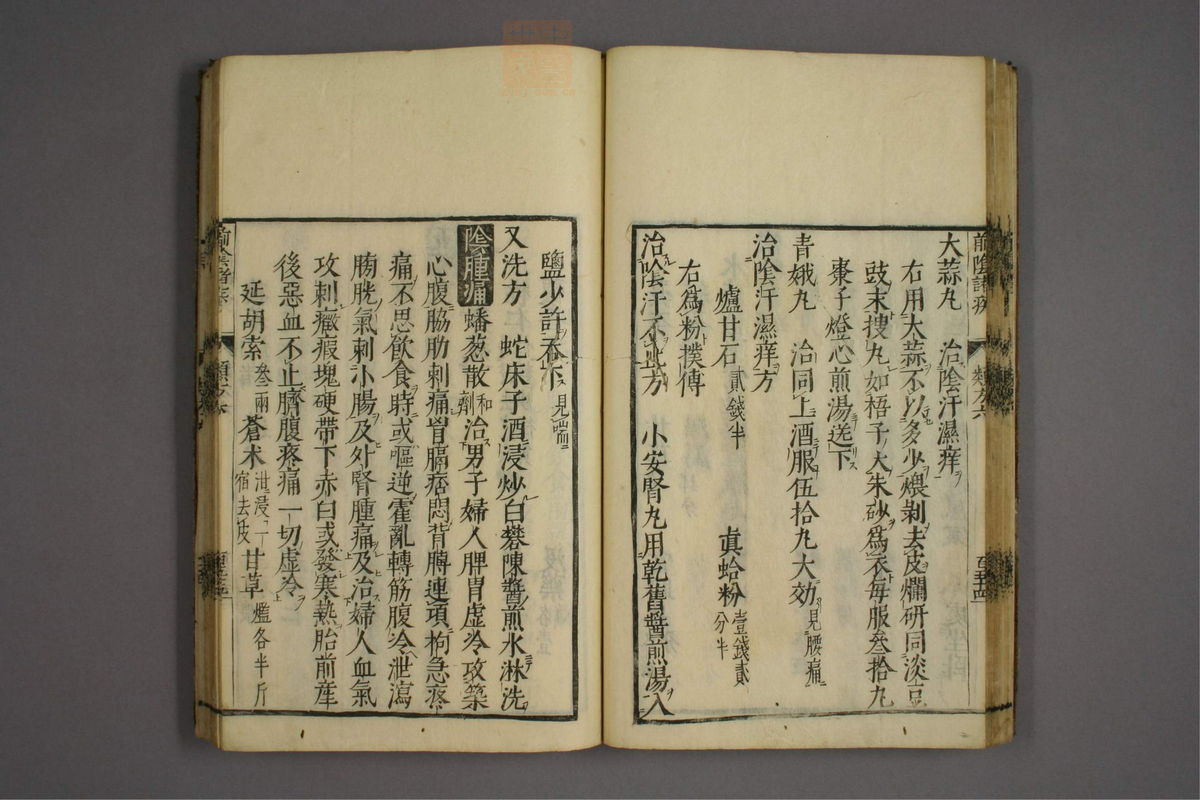 大蒜丸　治陰汗濕痒
右用大蒜不以多少煨剝去皮爛研同淡豆
豉末搜丸如梧子大朱砂爲衣每服叄拾丸
棗子燈心煎湯送下
青娥丸　治同上酒服伍拾丸大効見腰痛
治陰汗濕痒方
爐甘石貳錢半　眞蛤粉壹錢貳分半
右爲粉撲傅
治陰汗不止方　小安腎丸用乾舊醬煎湯入
鹽少許吞下見喘
又洗方　蛇床子酒浸炒白礬陳醬煎水淋洗
陰腫痛　蟠葱散和劑治男子婦人脾胃虛冷攻築
心腹脇肋刺痛胷膈痞悶背膊連項拘急疼
痛不思飲食時或嘔逆霍亂轉筋腹冷泄瀉
膀胱氣刺小腸及外腎腫痛及治婦人血氣
攻刺癥瘕塊硬帶下赤白或發寒熱胎前產
後惡血不止臍腹疼痛一切虛冷
延胡索叄兩　蒼朮泔浸一宿去皮　甘草爁各半斤